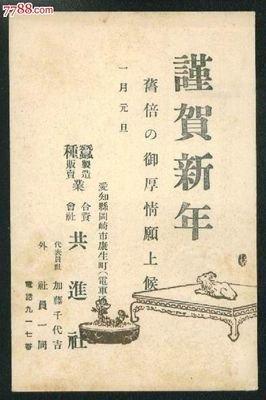 7788.com
謹賀新年
舊倍の御厚情願上候
一月元旦
愛知縣岡崎市康生町(電車
蠶種製造販賣業
合資會社 共進社
代表社員 加藤千代吉
外 社員一同
電話九一七番